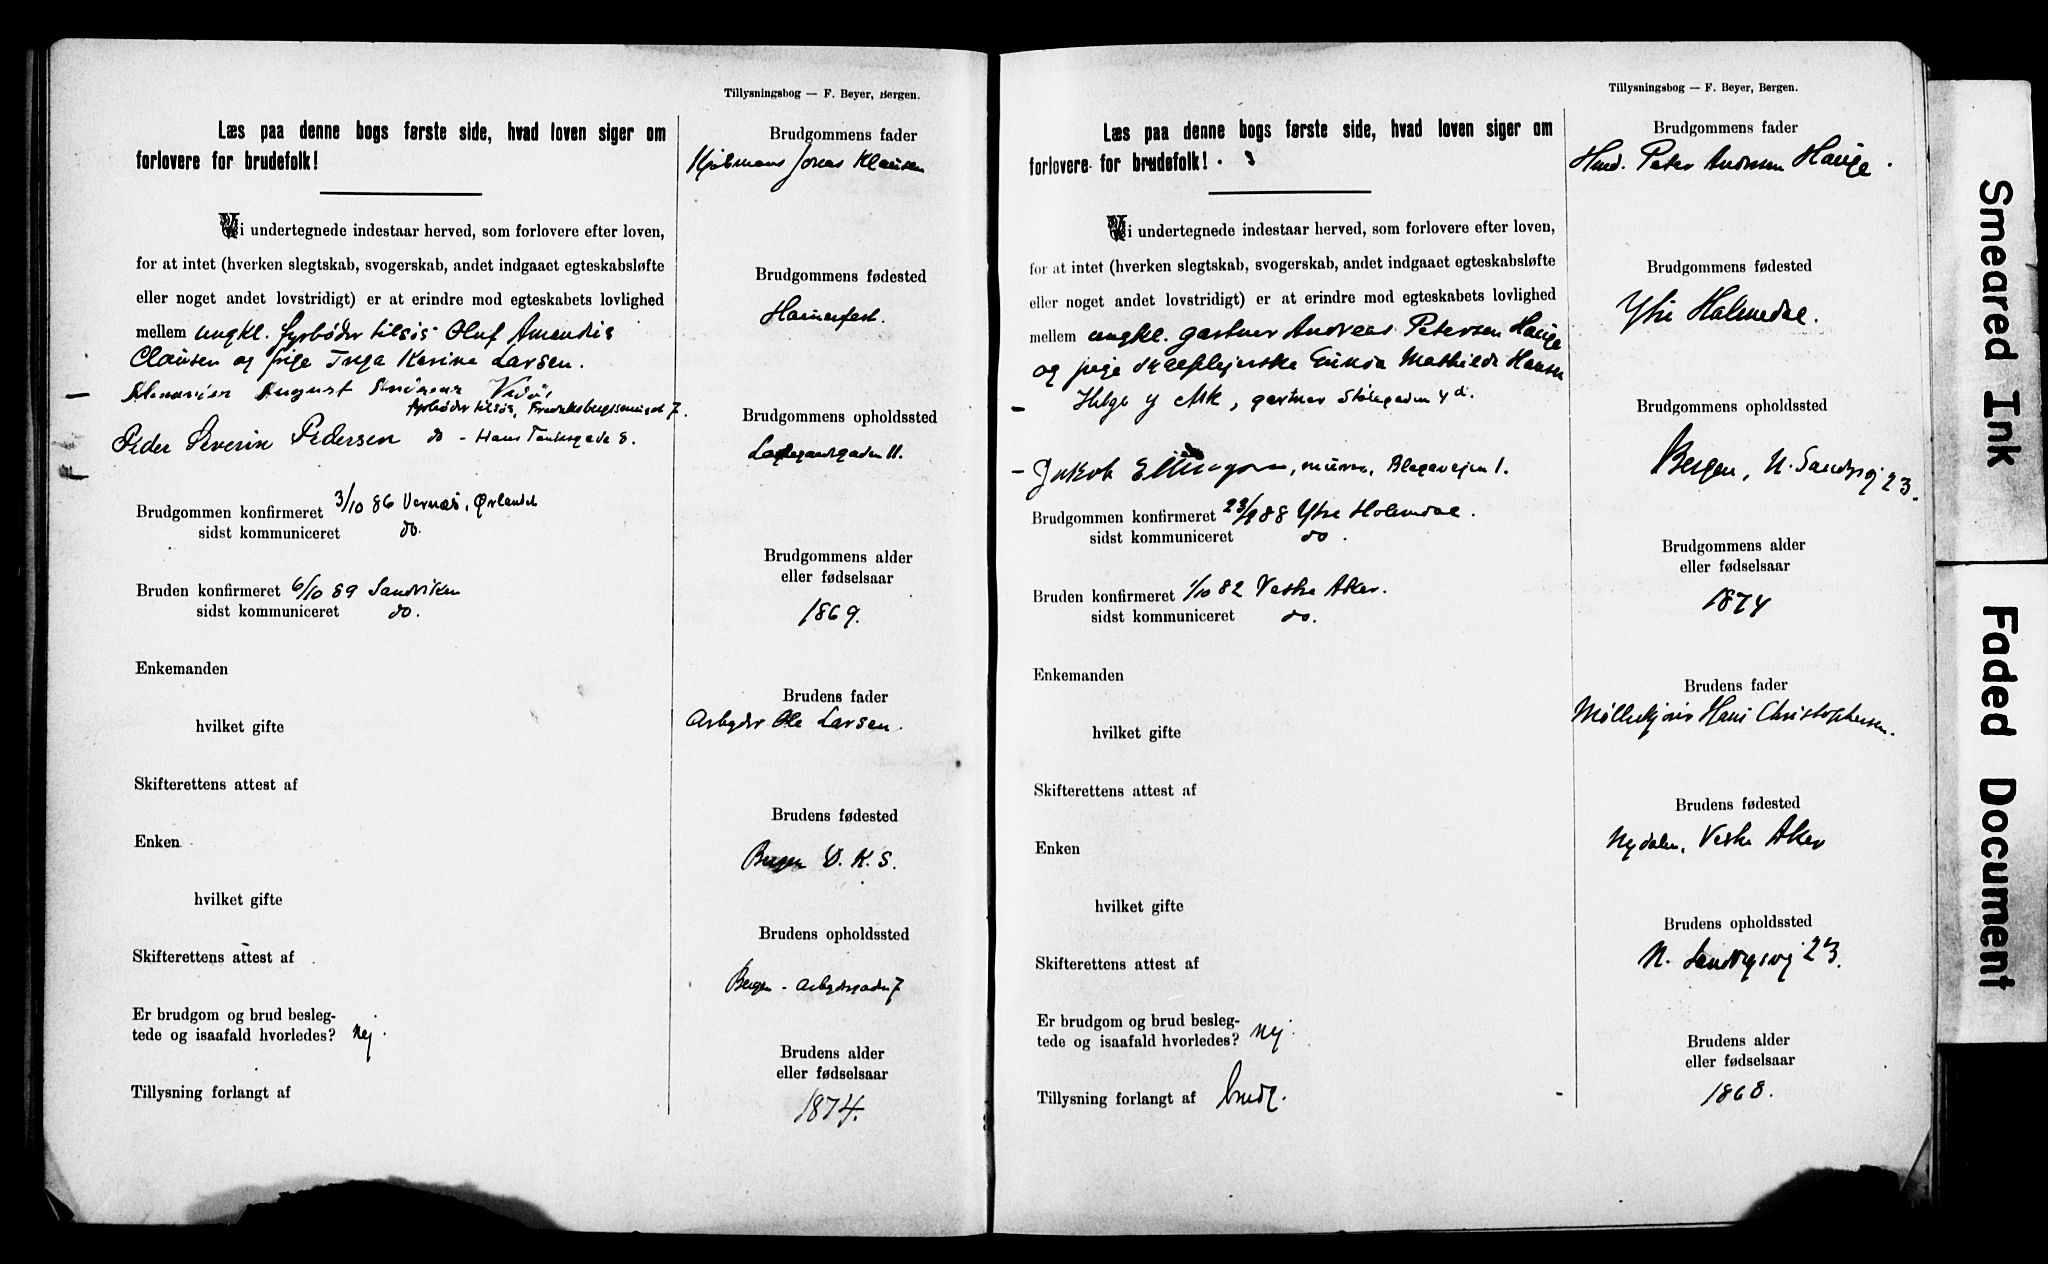 Tillysningsbog — F. Beyer, Bergen.
Læs paa denne bogs første side, hvad loven siger om
forlovere for brudefolk!
Vi undertegnede indestaar herved, som forlovere efter loven,
for at intet (hverken slegtskab, svogerskab, andet indgaaet egteskabsløfte
eller noget andet lovstridigt) er at erindre mod egteskabets lovlighed
mellem ungkl. fyrbøder tilsøs Oluf Amandus
Clausen og pige Inga Karine Larsen.
August
fyrbøder tilsøs, 7.
Peder Severin Pedersen do - Hans Tanksgade 8.
Brudgommen konfirmeret 3/10 86 Vernæs, Ørlandet
sidst kommuniceret do.
Bruden konfirmeret 6/10 89 Sandviken
sidst kommuniceret do.
Enkemanden
hvilket gifte
Skifterettens attest af
Enken
hvilket gifte
Skifterettens attest af
Er brudgom og brud besleg-
tede og isaafald hvorledes? Nej.
Tillysning forlangt af
Brudgommens fader
Jonas Klausen
Brudgommens fødested
Hammerfest.
Brudgommens opholdssted
Ladegaardsgaden 11.
Brudgommens alder
eller fødselsaar
1869.
Brudens fader
Arbejder Ole Larsen.
Brudens fødested
Bergen D. K. S.
Brudens opholdssted
Bergen - Arbejdergaden 7
Brudens alder
eller fødselsaar
1874.
Tillysningsbog — F. Beyer, Bergen.
Læs paa denne bogs første side, hvad loven siger om
forlovere for brudefolk!
Vi undertegnede indestaar herved, som forlovere efter loven,
for at intet (hverken slegtskab, svogerskab, andet indgaaet egteskabsløfte
eller noget andet lovstridigt) er at erindre mod egteskabets lovlighed
mellem ungkl. gartner Andreas Petersen Hauge
og pige Mathilde Hansen
Helge Ask, gartner Stølegaden 4 d.
Jakob Ellingsen, murer, Blegevejen 1.
Brudgommen konfirmeret 23/9 88 Ytre Holmedal.
sidst kommuniceret do.
Bruden konfirmeret 1/10 82 Vestre Aker.
sidst kommuniceret do.
Enkemanden
hvilket gifte
Skifterettens attest af
Enken
hvilket gifte
Skifterettens attest af
Er brudgom og brud besleg-
tede og isaafald hvorledes? Nej.
Tillysning forlangt af brudg.
Brudgommens fader
Husm. Peter Andersen Hauge.
Brudgommens fødested
Ytre Holmedal.
Brudgommens opholdssted
Bergen, N. Sandvigsvej 23.
Brudgommens alder
eller fødselsaar
1874
Brudens fader
Møllekjører Hans Christophersen.
Brudens fødested
Nydalen, Vestre Aker
Brudens opholdssted
N. Sandvigsvej 23.
Brudens alder
eller fødselsaar
1868.
Smeared Ink
Faded Document